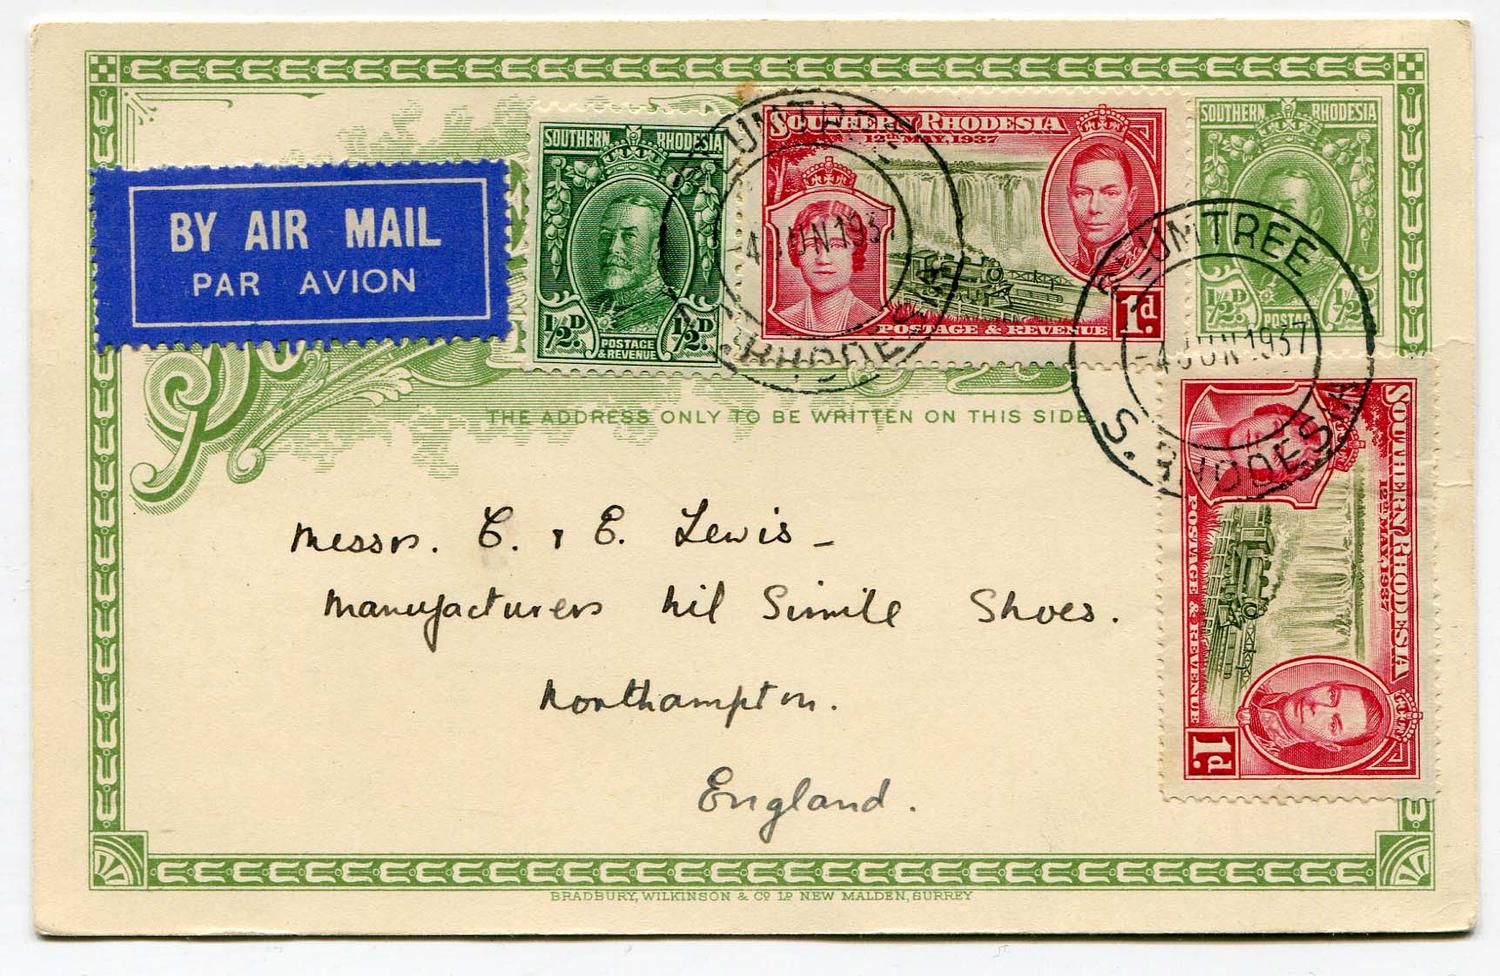 BY AIR MAIL
PAR AVION
SOUTHERN RHODESIA
½D ½D
POSTAGE
& REVENUE
SOUTHERN RHODESIA
12TH MAY, 1937
POSTAGE & REVENUE
1d.
PLUMTREE
-4 JUN 1937
S. RHODESIA
SOUTHERN RHODESIA
½D ½D
POSTAGE
PLUMTREE
-4 JUN 1937
S. RHODESIA
SOUTHERN RHODESIA
12TH MAY, 1937
POSTAGE & REVENUE
1d.
THE ADDRESS ONLY TO BE WRITTEN ON THIS SIDE
Messrs. C. & E. Lewis –
Manufacturers Nil Simile Shoes.
Northampton.
England.
BRADBURY, WILKINSON & Co Ld NEW MALDEN, SURREY